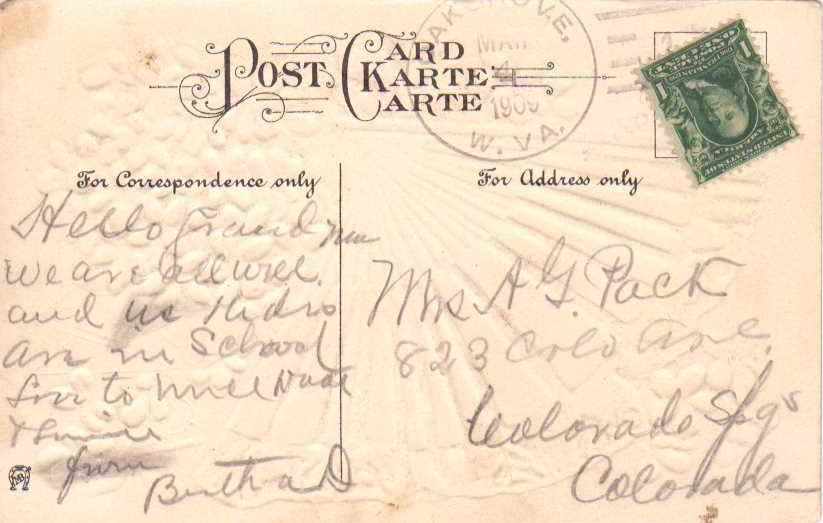 POST CARD
KARTE
CARTE
MAR
4
1909
W. VA.
For Correspondence only
For Address only
Hello Grand
we are all well.
and us Kids
are in School
Love to
from
Bertha
Mrs A G Pack
823 Colo Ave.
Colorado Spgs
Colorado